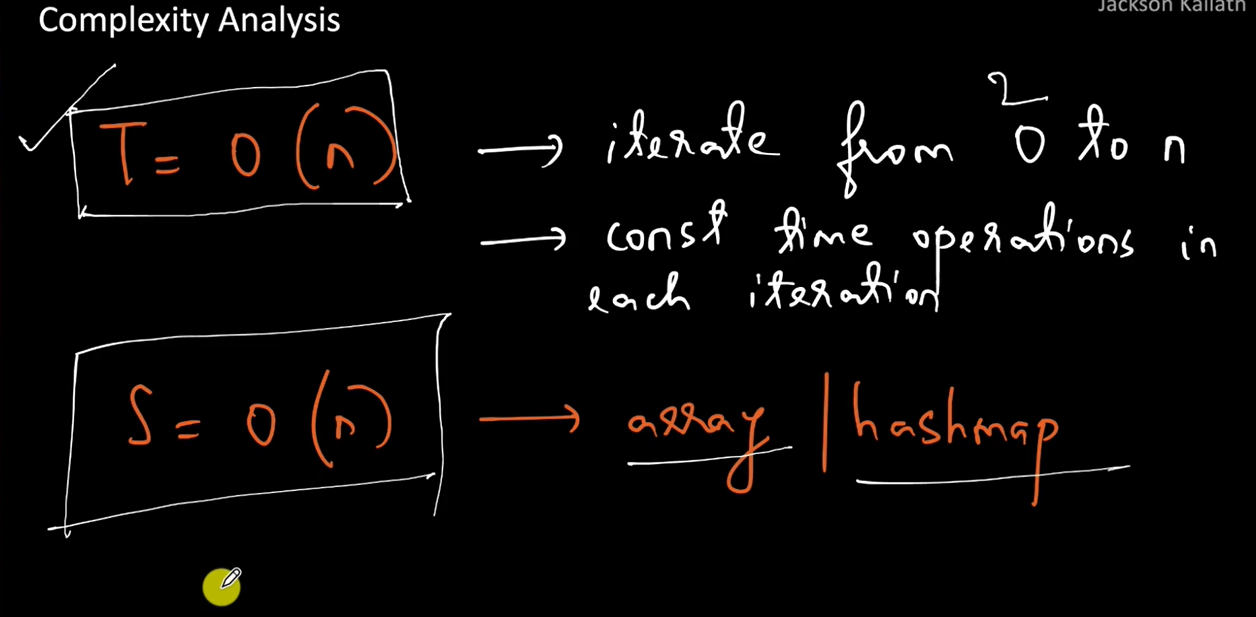 Complexity Analysis
Jackson Kallath
T = O (n) → iterate from 0 to n
2
→ const time operations in
each iteration
S = O (n) → array | hashmap